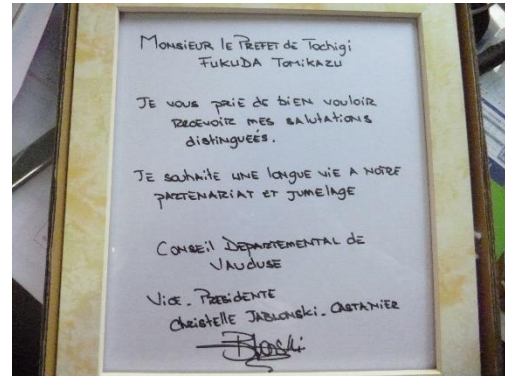 Monsieur le Prefet de Tochigi
Fukuda Tomikazu
Je vous prie de bien vouloir
recevoir mes salutations
distinguées.
Je souhaite une longue vie a notre
partenariat et jumelage
Conseil Departemental de
Vaucluse
Vice-Presidente
Christelle Jablonski-Castanier